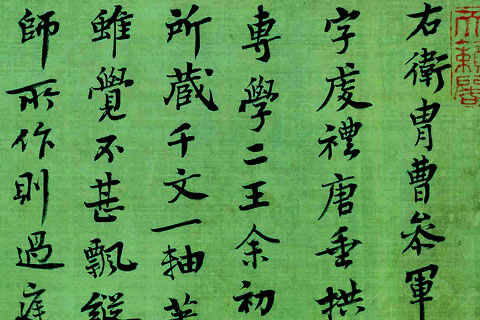 天籟閣
右衛胄曹叅軍
字虔禮唐垂拱
專學二王余初
所蔵千文一軸
雖覺不甚飄縱
師所作則過庭